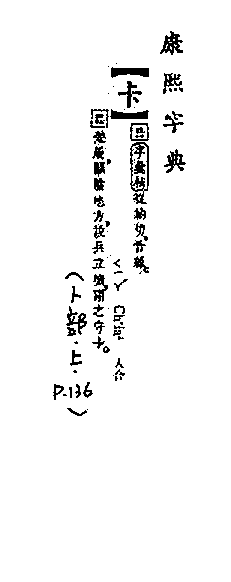 康熙字典
【卡】
字彙補從納切，音雜。
入合
楚屬關隘地方，設兵立塘，謂之守卡。
（卜部．上．P.136）